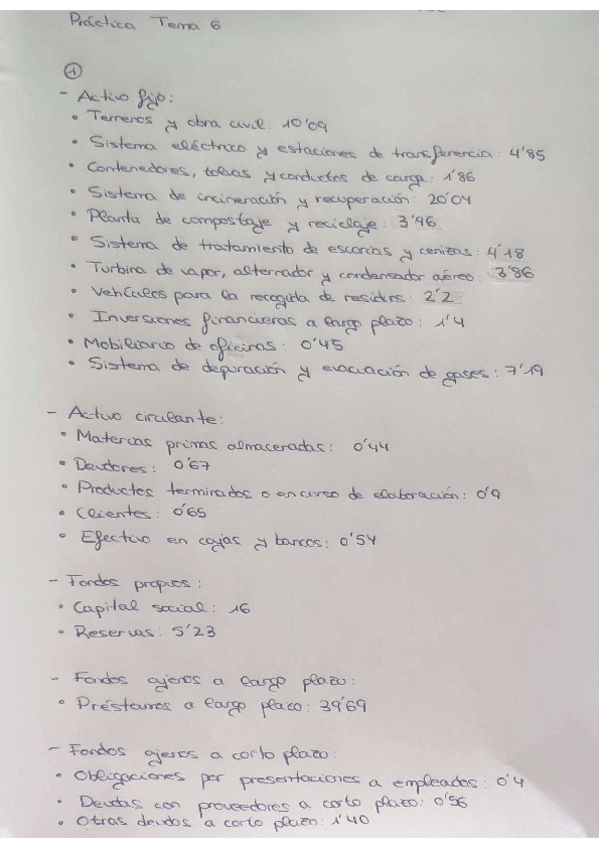 Práctica Tema 6
1
- Activo fijo:
• Terrenos y obra civil: 10'09
• Sistema eléctrico y estaciones de transferencia: 4'85
• Contenedores, tolvas y conductos de carga: 1'86
• Sistema de incineración y recuperación: 20'04
• Planta de compostaje y reciclaje: 3'96
• Sistema de tratamiento de escorias y cenizas: 4'18
• Turbina de vapor, alternador y condensador aéreo: 3'86
• Vehículos para la recogida de residuos: 2'2
• Inversiones financieras a largo plazo: 1'4
• Mobiliario de oficinas: 0'45
• Sistema de depuración y evacuación de gases: 7'19
- Activo circulante:
• Materias primas almacenadas: 0'44
• Deudores: 0'67
• Productos terminados o en curso de elaboración: 0'9
• Clientes: 0'65
• Efectivo en cajas y bancos: 0'54
- Fondos propios:
• Capital social: 16
• Reservas: 5'23
- Fondos ajenos a largo plazo:
• Préstamos a largo plazo: 39'69
- Fondos ajenos a corto plazo:
• Obligaciones por presentaciones a empleados: 0'4
• Deudas con proveedores a corto plazo: 0'56
• Otras deudas a corto plazo: 1'40